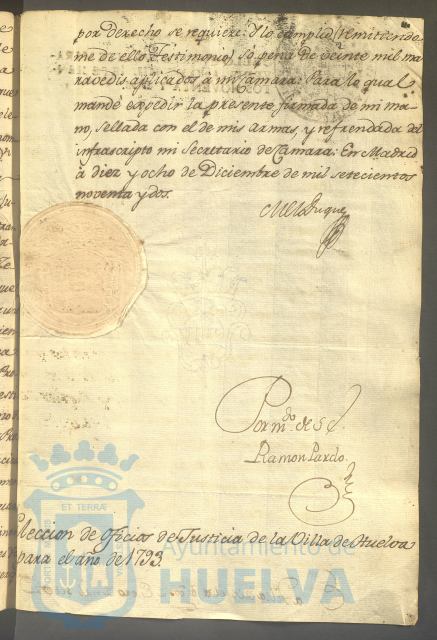 por derecho se requiere: Y lo cumplid (remitiendo
me de ello Testimonio) so pena de veinte mil ma
ravedis aplicados à mi Camara: Para lo qual
mandé expedir la presente firmada de mi ma
no, sellada con el de mis armas, y refrendada del
infrascripto mi Secretario de Camara: En Madrid
à diez y ocho de Diciembre de mil setecientos
noventa y dos.
Duque
Por m.do de S E.
Ramon Pardo.
ET TERRÆ
Eleccion de oficios de Justicia de la Villa de Huelva
para el año de 1793.
Ayuntamiento de
HUELVA